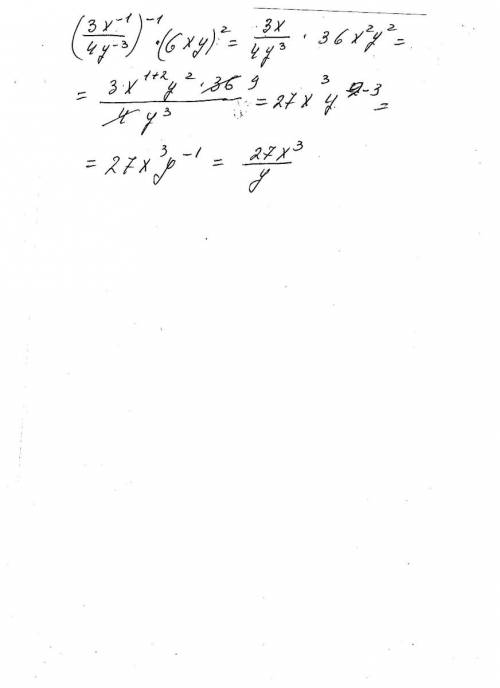 (3x⁻¹/4y⁻³)⁻¹ · (6xy)² = 3x/4y³ · 36x²y² =
= 3x¹⁺²y² · 36 9/4y³ = 27x³y²⁻³ =
= 27x³y⁻¹ = 27x³/y